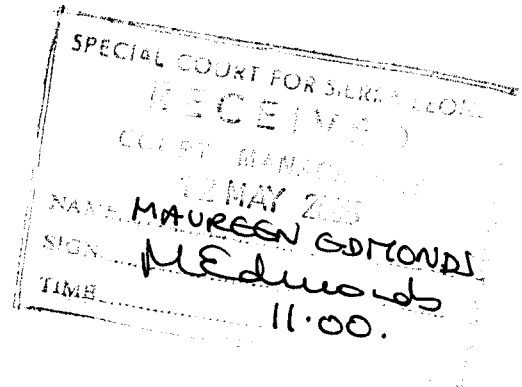 SPECIAL COURT FOR SIERRA LEONE
RECEIVED
COURT MANAGEMENT
12 MAY
NAME MAUREEN EDMONDS
SIGN MEdmonds
TIME 11.00.